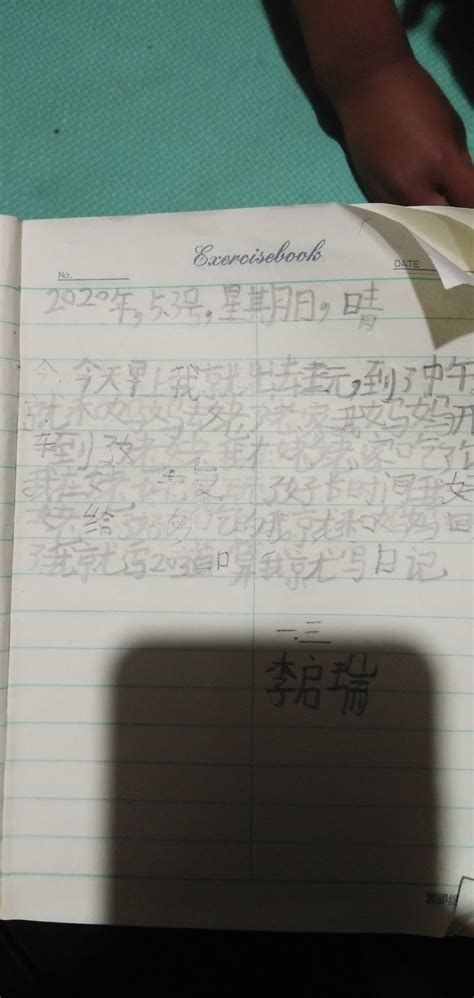 Exercisebook
No.
DATE
2020年,5.3号,星期日,晴
今 今天早上我就出去玩,到了中午
就和妈妈去姥姥家我妈妈开
车到了姥姥家我在姥姥家吃了
我在姥姥家玩了好长时间我
姥姥给了我吃的我就和妈妈回
了我就写203道口算我就写日记
一.三
李启瑞